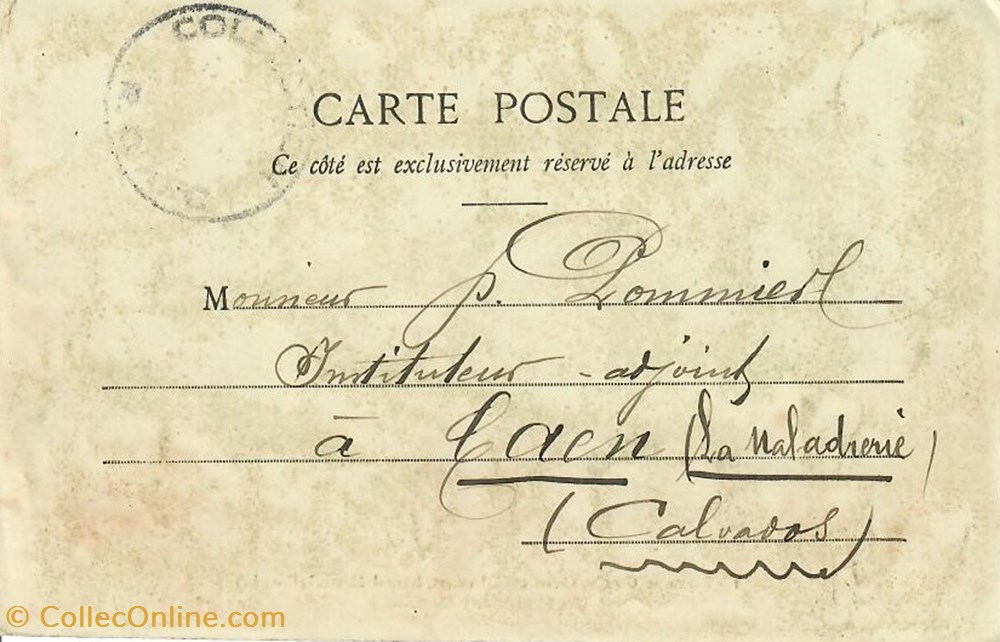 CARTE POSTALE
Ce côté est exclusivement réservé à l'adresse
Monsieur P. Pommier
Instituteur-adjoint
à Caen (La Maladrerie)
(Calvados)
© CollecOnline.com